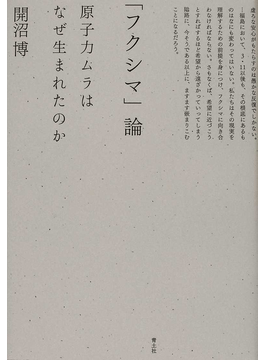 虚ろな安心がもたらすのは愚かな反復でしかない。
―福島において、3・11以後も、その根底にあるも
のはなにも変わってはいない。私たちはその現実を
理解するための前提を身につけ、フクシマに向き合
わなければならない。さもなくば、希望に近づこう
とすればするほど希望から遠ざかっていってしまう
隘路に、今そうである以上に、ますます嵌まりこむ
ことになるだろう。
「フクシマ」論
原子力ムラは
なぜ生まれたのか
開沼 博
青土社